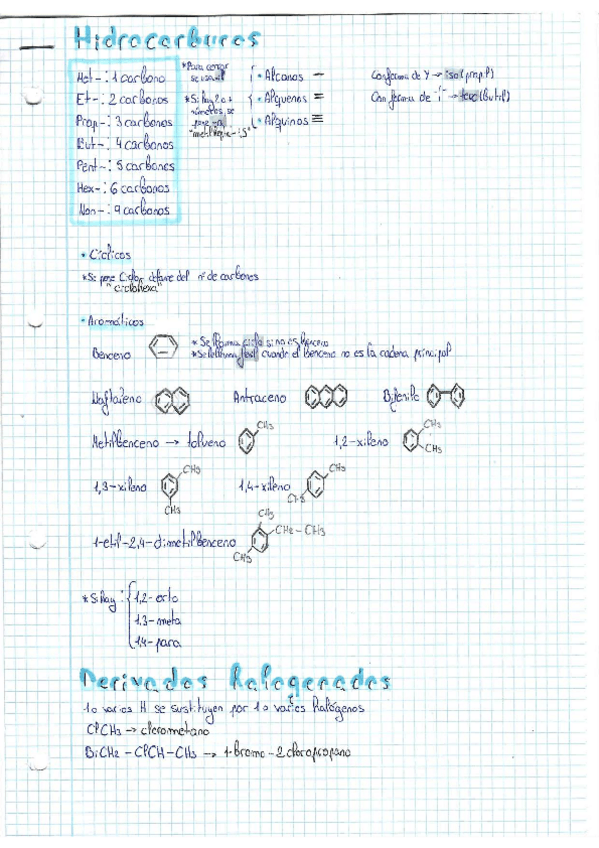 Hidrocarburos
Met-: 1 carbono
Et-: 2 carbonos
Prop-: 3 carbonos
But-: 4 carbonos
Pent-: 5 carbonos
Hex-: 6 carbonos
Non-: 9 carbonos
*Para
se usa
*Si hay 2 o +
números se
pone
· Alcanos —
· Alquenos =
· Alquinos ≡
Con forma de Y → iso(prop.l)
Con forma de → terc(butil)
· Cíclicos
*Se pone Ciclo, delante del nº de carbonos
"ciclohexa"
· Aromáticos
Benceno
* Se llama ciclo si no es benceno
*Se llama fenil cuando el benceno no es la cadena principal
Naftaleno
Antraceno
Bifenilo
Metilbenceno → tolueno
CH3
1,2-xileno
CH3
CH3
1,3-xileno
CH3
CH3
1,4-xileno
CH3
CH3
1-etil-2,4-dimetilbenceno
CH3
CH2-CH3
CH3
*Si hay:
1,2-orto
1,3-meta
1,4-para
Derivados halogenados
1 o varios H se sustituyen por 1 o varios halógenos
ClCH3 → clorometano
BrCH2-ClCH-CH3 → 1-bromo-2cloropropano